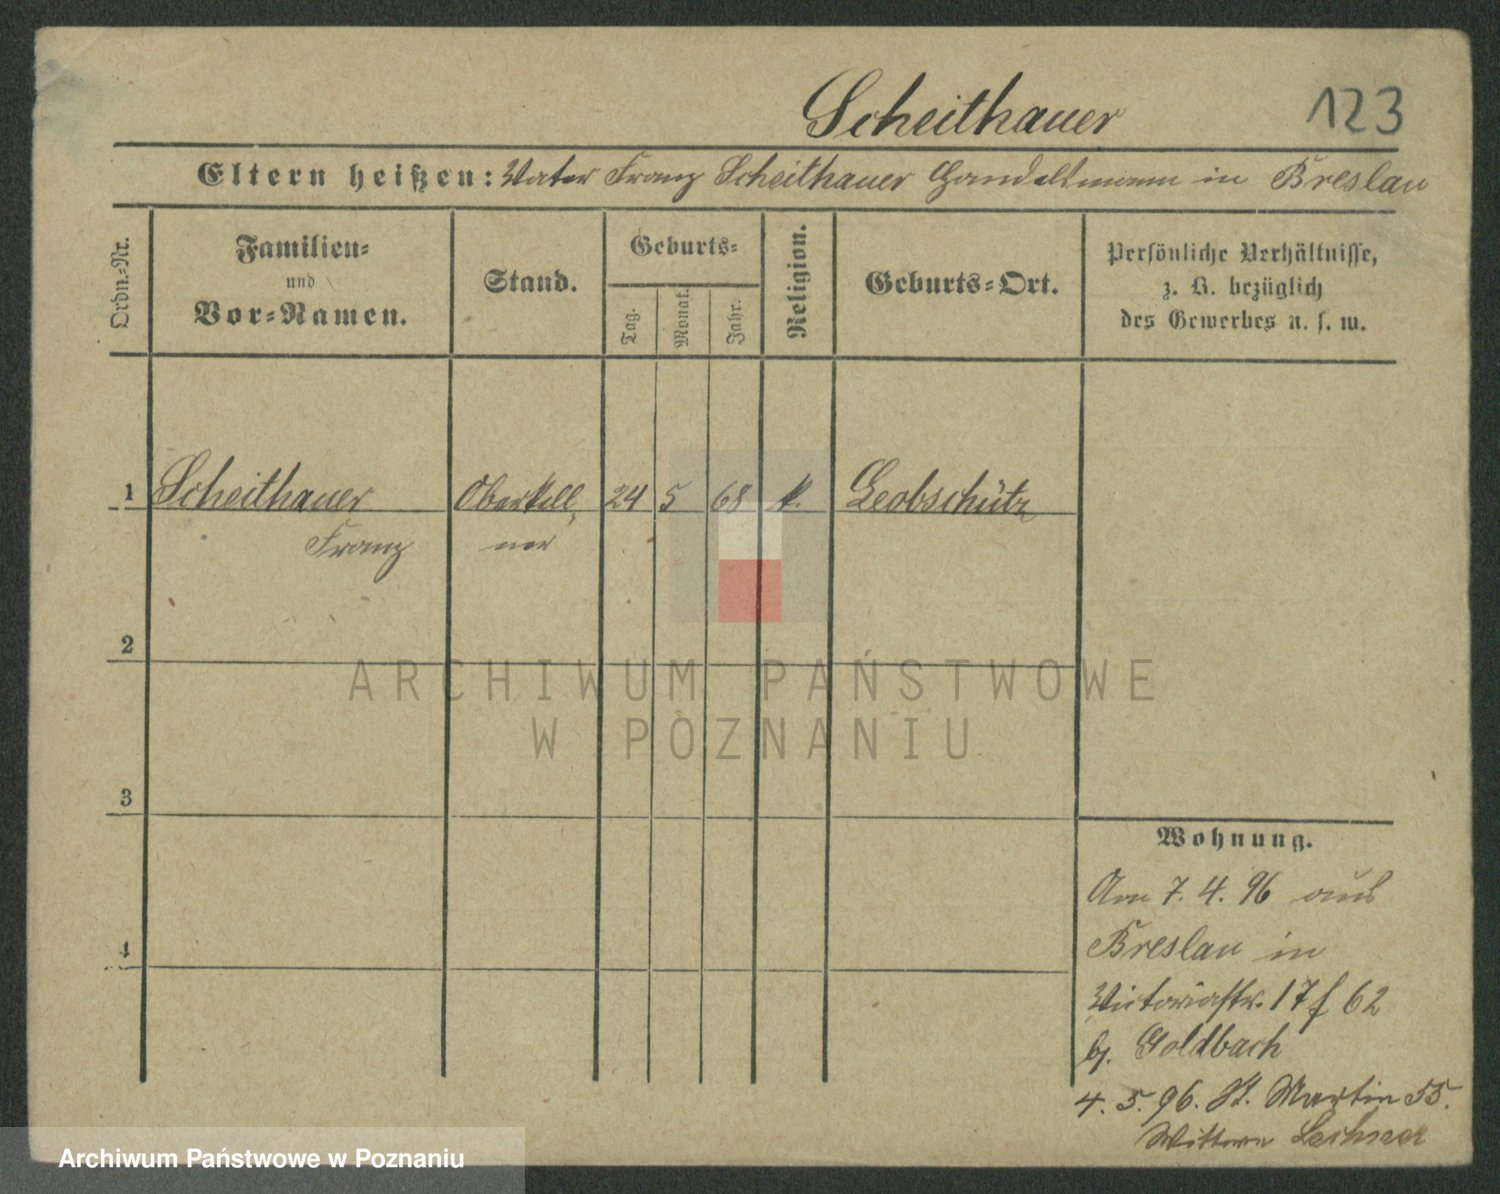 Scheithauer 123
Eltern heißen: Vater Franz Scheithauer Handelsmann in Breslau
Ordn.-Nr.
Familien-
und
Vor-Namen.
Stand.
Geburts-
Tag.
Monat.
Jahr.
Religion.
Geburts-Ort.
Persönliche Verhältnisse,
z. B. bezüglich
des Gewerbes u. s. w.
1 Scheithauer Oberkell 24 5 68 k. Leobschütz
Franz ner
2
3
4
Wohnung.
Am 7. 4. 96 aus
Breslau in
Victoriastr. 17 f 62
b. Goldbach
4. 5. 96. St. Martin 55.
ARCHIWUM PAŃSTWOWE
W POZNANIU
Archiwum Państwowe w Poznaniu